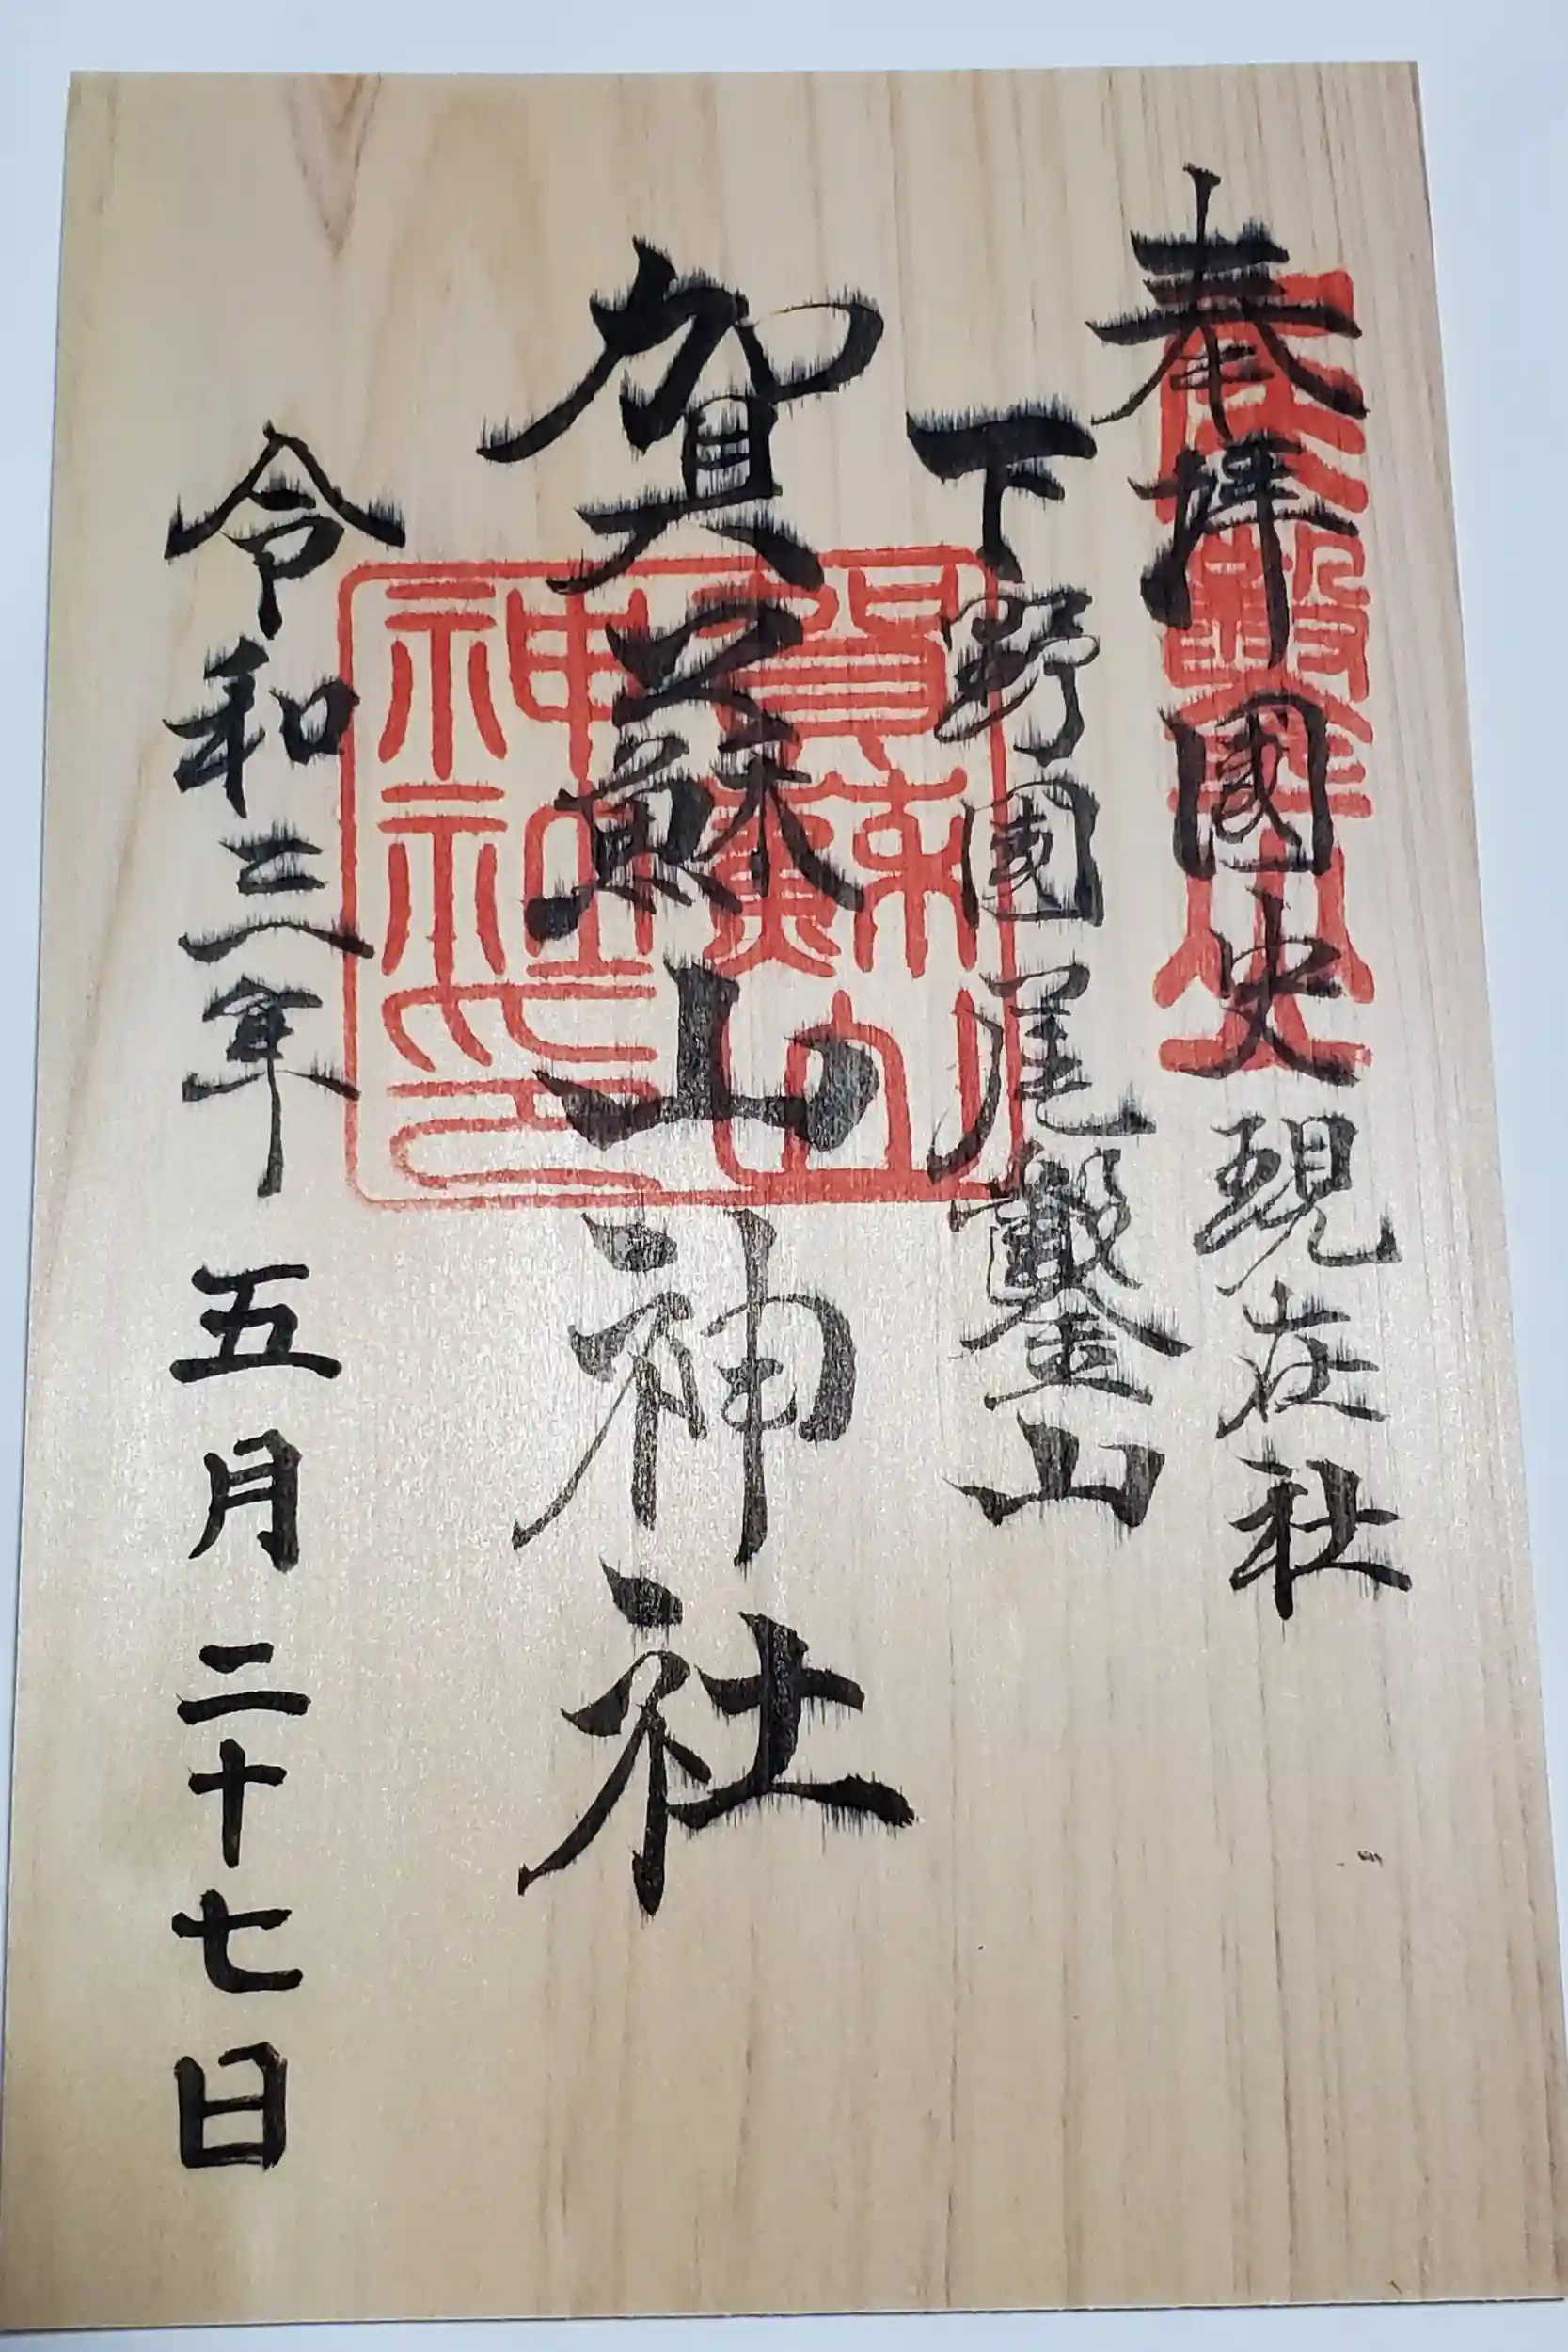 奉拝 國史現在社
下野國 尾鑿山
賀蘇山神社
令和三年 五月 二十七日
賀蘇山神社印